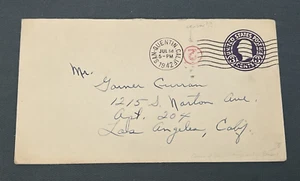 SAN QUENTIN, CALIF.
JUL 14
5-PM
1942
UNITED STATES POSTAGE
Mr. Garner Curran
1215 S. Norton Ave.
Apt. 204
Los Angeles, Calif.